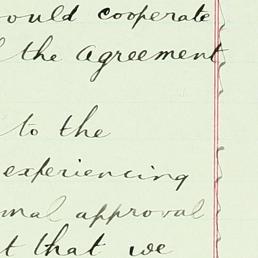 would cooperate
the agreement
to the
experiencing
approval
that we